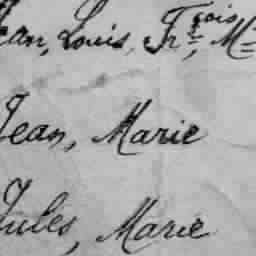 Jean, Louis, Fr:çois, M
Jean, Marie
Jules, Marie